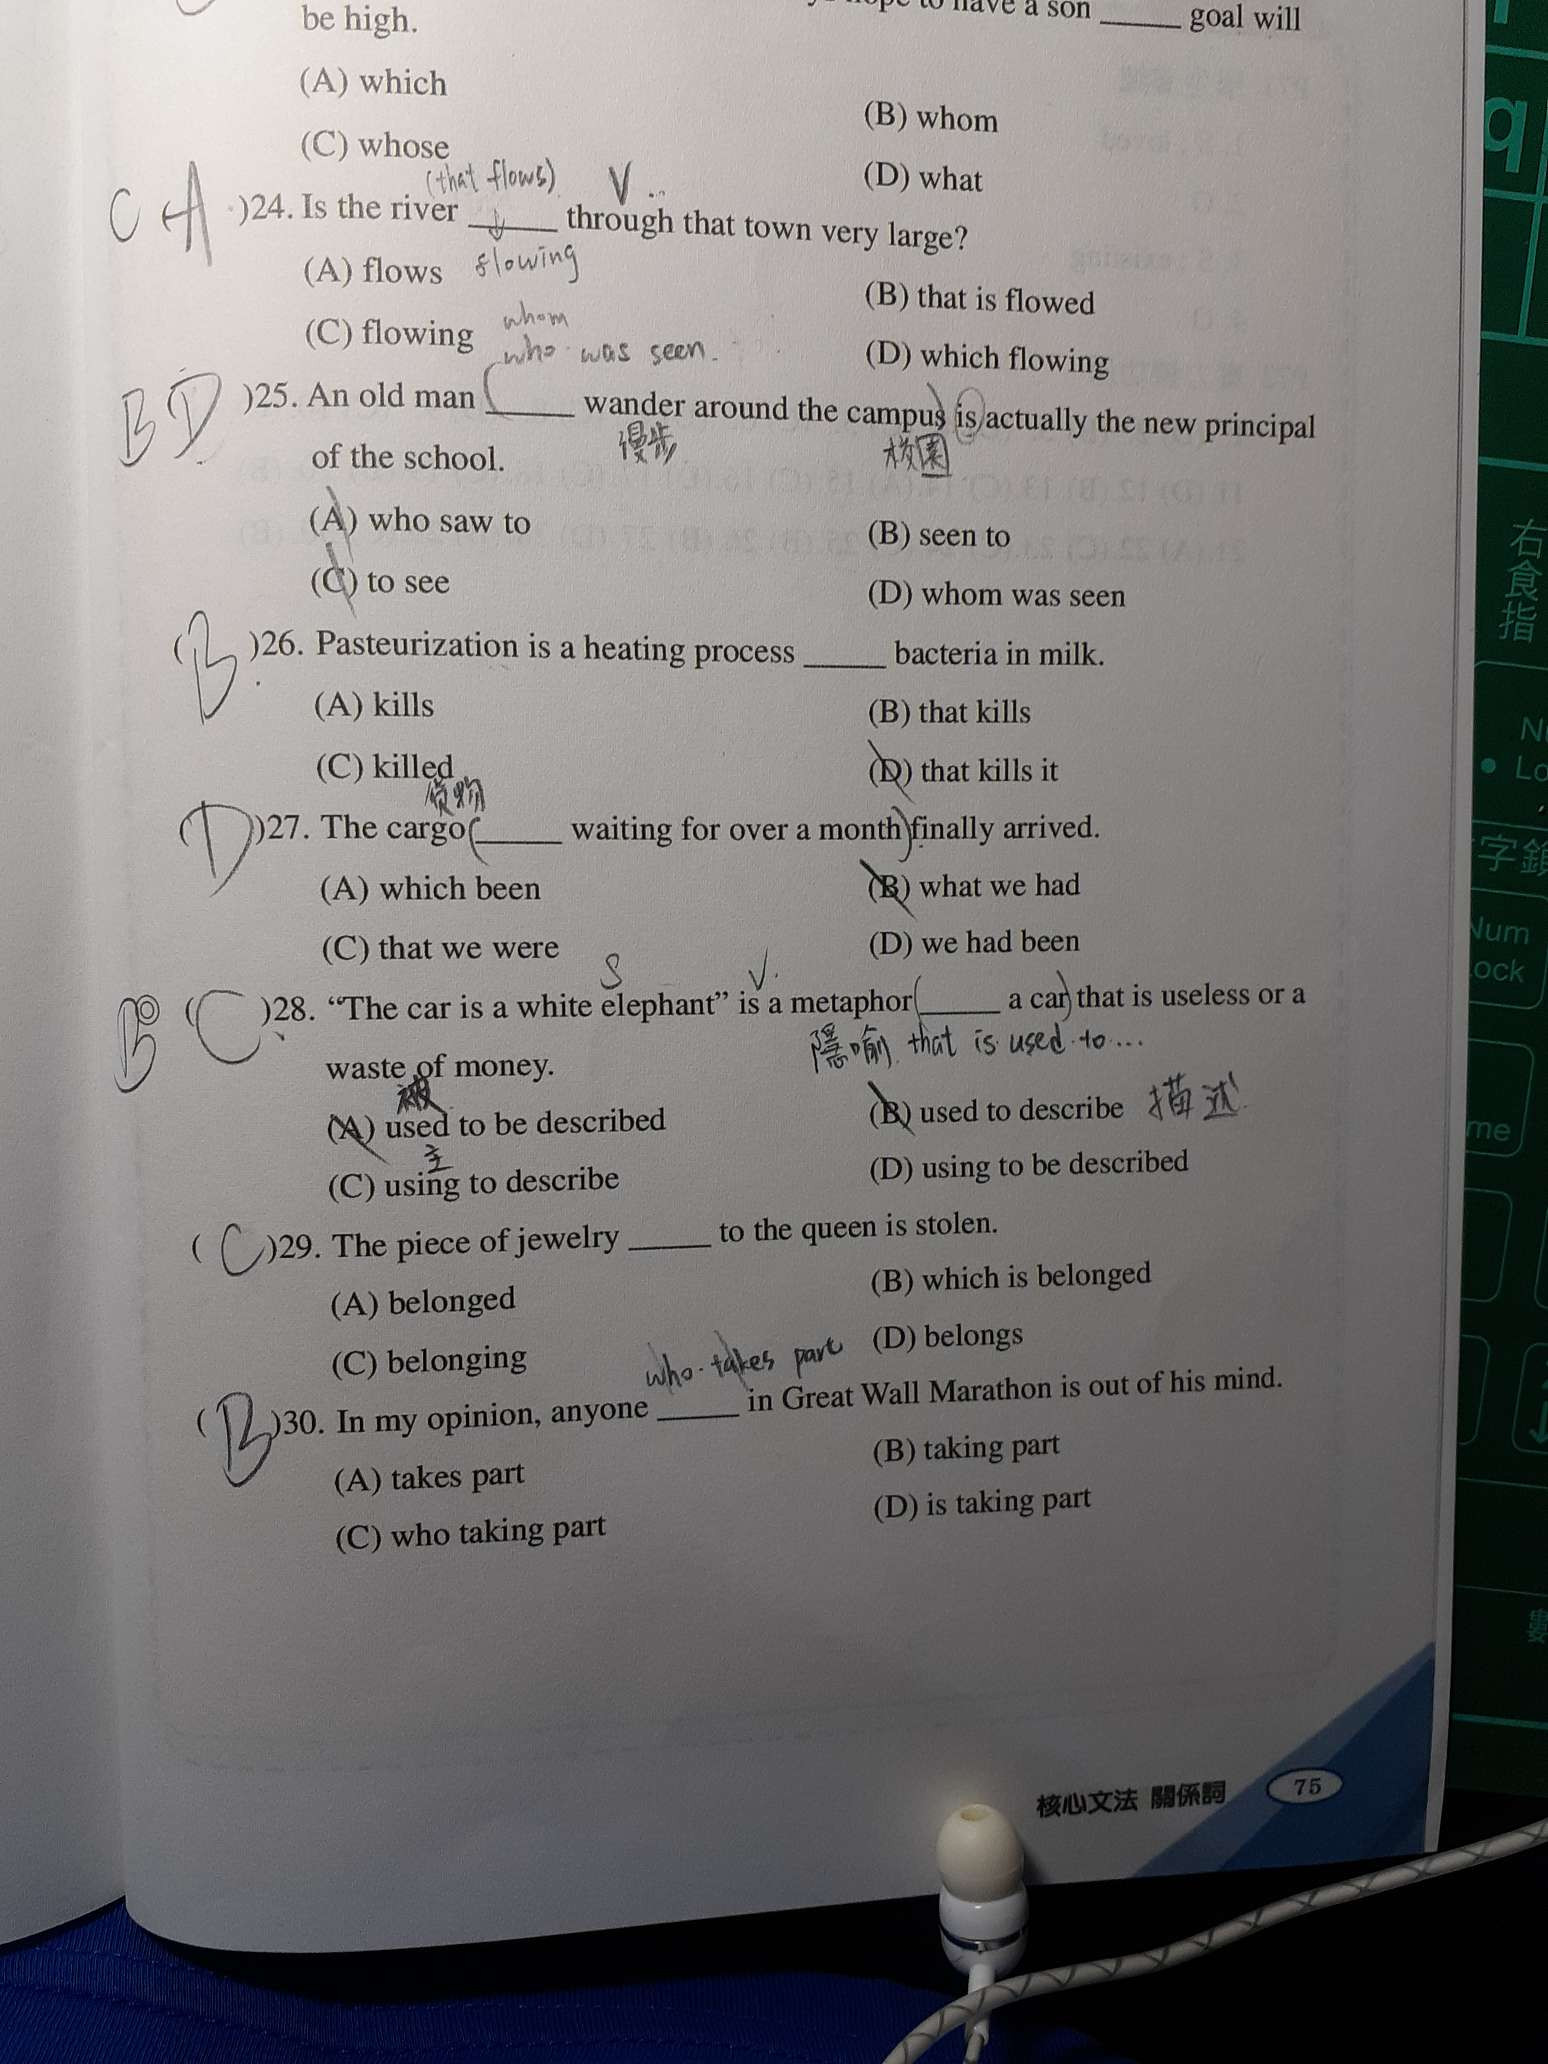 to have a son _____ goal will
be high.
(A) which
(B) whom
(C) whose
(D) what
(that flows) V
C A )24. Is the river _____ through that town very large?
(A) flows flowing
(B) that is flowed
(C) flowing
(D) which flowing
whom
who was seen.
B D )25. An old man _____ wander around the campus is actually the new principal
漫步 校園
of the school.
(A) who saw to
(B) seen to
(C) to see
(D) whom was seen
( B )26. Pasteurization is a heating process _____ bacteria in milk.
(A) kills
(B) that kills
(C) killed
(D) that kills it
貨物
( D )27. The cargo ( _____ waiting for over a month) finally arrived.
(A) which been
(B) what we had
(C) that we were
(D) we had been
S V.
B ( C )28. “The car is a white elephant” is a metaphor ( _____ a car) that is useless or a
隱喻 that is used to...
waste of money.
被
(A) used to be described
(B) used to describe 描述
主
(C) using to describe
(D) using to be described
( C )29. The piece of jewelry _____ to the queen is stolen.
(A) belonged
(B) which is belonged
(C) belonging
(D) belongs
who takes part
( B )30. In my opinion, anyone _____ in Great Wall Marathon is out of his mind.
(A) takes part
(B) taking part
(C) who taking part
(D) is taking part
核心文法 關係詞 75
q
右食指
字鎖
Num
Lock